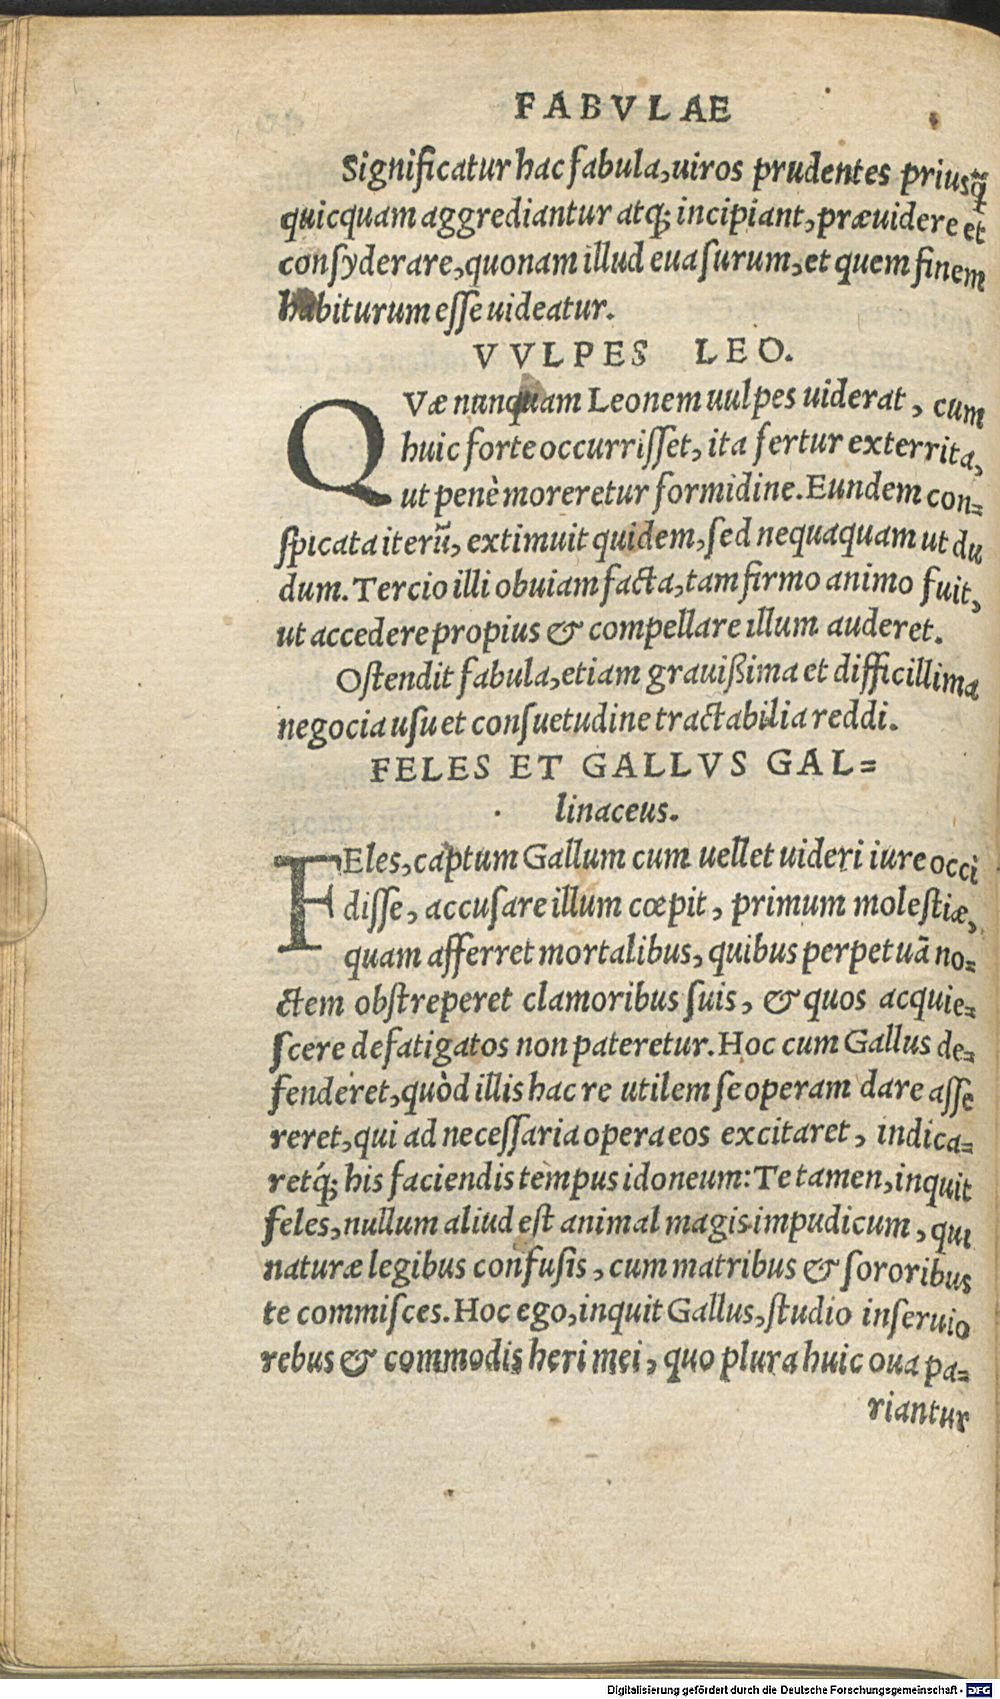 FABVLAE
Significatur hac fabula, uiros prudentes priusq̃
quicquam aggrediantur atq; incipiant, præuidere et
consyderare, quonam illud euasurum, et quem finem
habiturum esse uideatur.
VVLPES LEO.
QVæ nunquam Leonem uulpes uiderat, cum
huic forte occurrisset, ita fertur exterrita,
ut penè moreretur formidine. Eundem con=
spicata iterũ, extimuit quidem, sed nequaquam ut du
dum. Tercio illi obuiam facta, tam firmo animo fuit,
ut accedere propius & compellare illum auderet.
Ostendit fabula, etiam grauißima et difficillima
negocia usu et consuetudine tractabilia reddi.
FELES ET GALLVS GAL=
linaceus.
FEles, captum Gallum cum uellet uideri iure occi
disse, accusare illum cœpit, primum molestiæ,
quam afferret mortalibus, quibus perpetuã no=
ctem obstreperet clamoribus suis, & quos acquie=
scere defatigatos non pateretur. Hoc cum Gallus de=
fenderet, quòd illis hac re utilem se operam dare asse
reret, qui ad necessaria opera eos excitaret, indica=
retq́; his faciendis tempus idoneum: Te tamen, inquit
feles, nullum aliud est animal magis impudicum, qui
naturæ legibus confusis, cum matribus & sororibus
te commisces. Hoc ego, inquit Gallus, studio inseruio
rebus & commodis heri mei, quo plura huic oua pa=
riantur
Digitalisierung gefördert durch die Deutsche Forschungsgemeinschaft - DFG